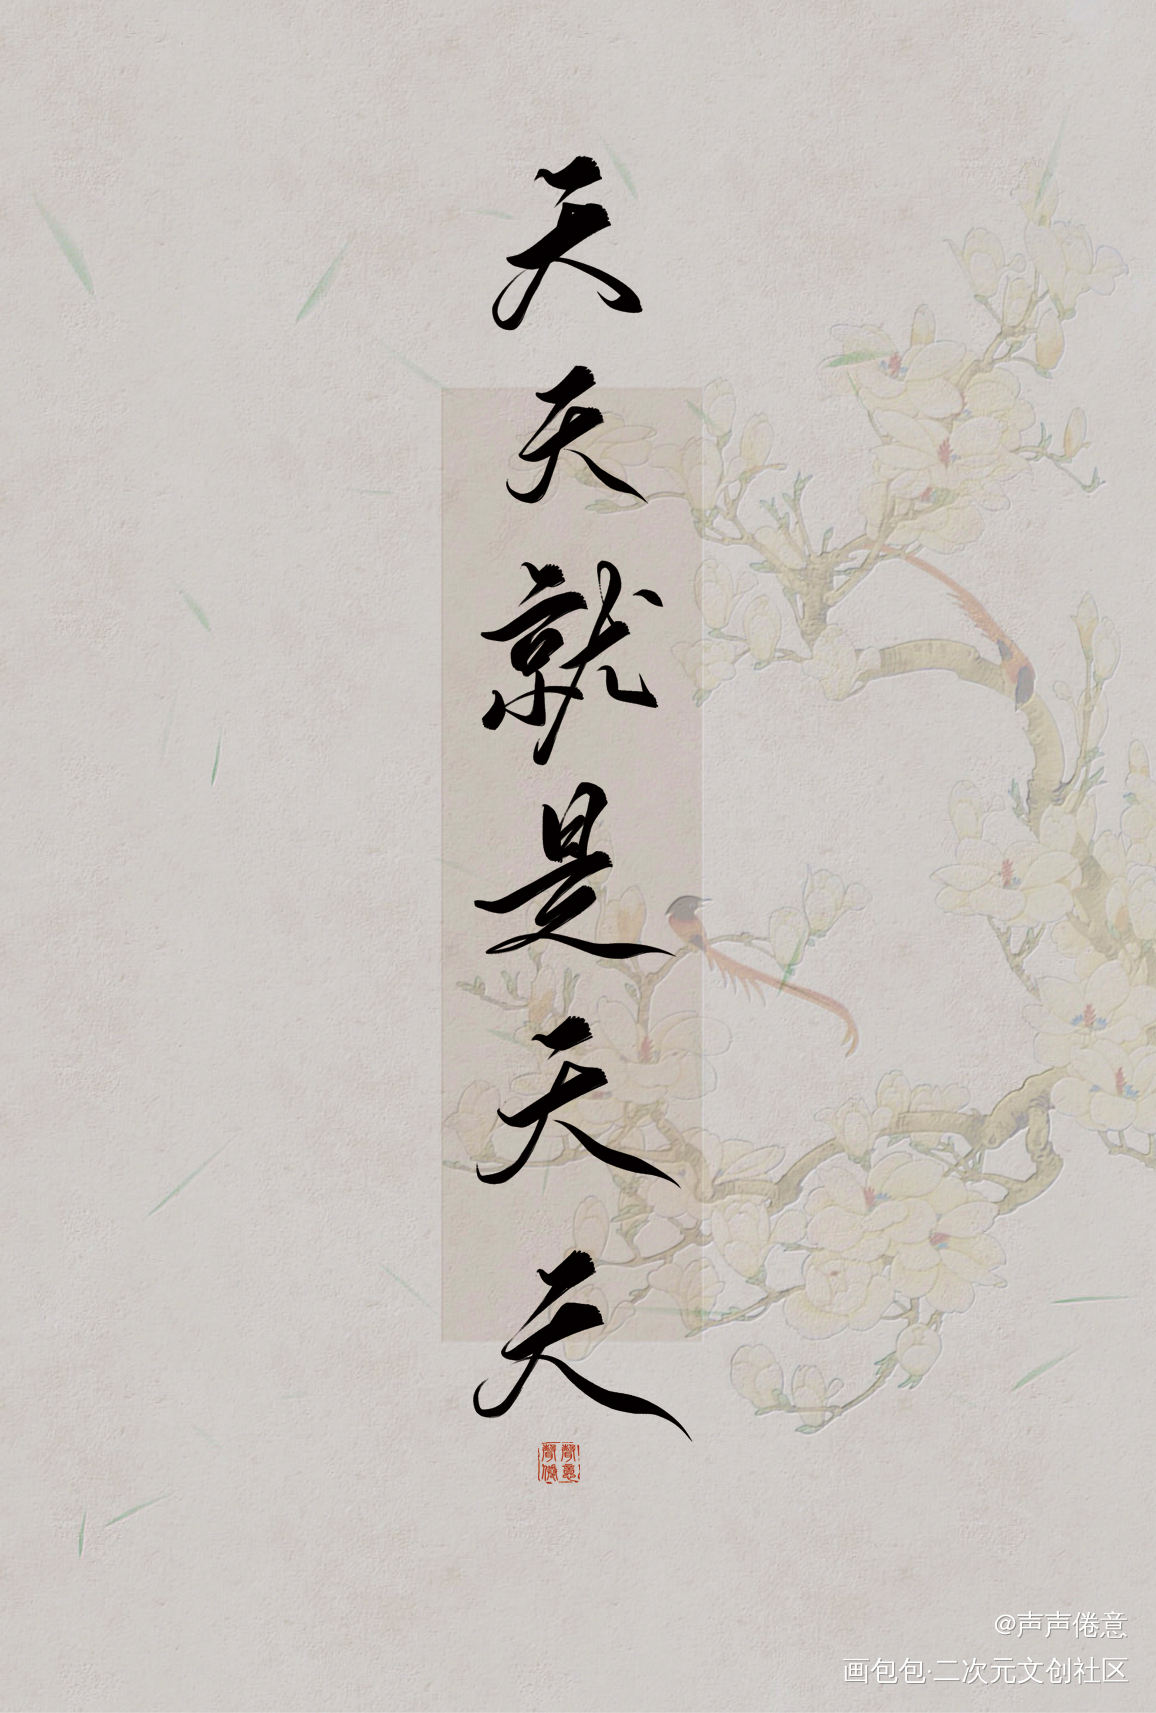 天天就是天天
聲聲倦意
@声声倦意
画包包·二次元文创社区